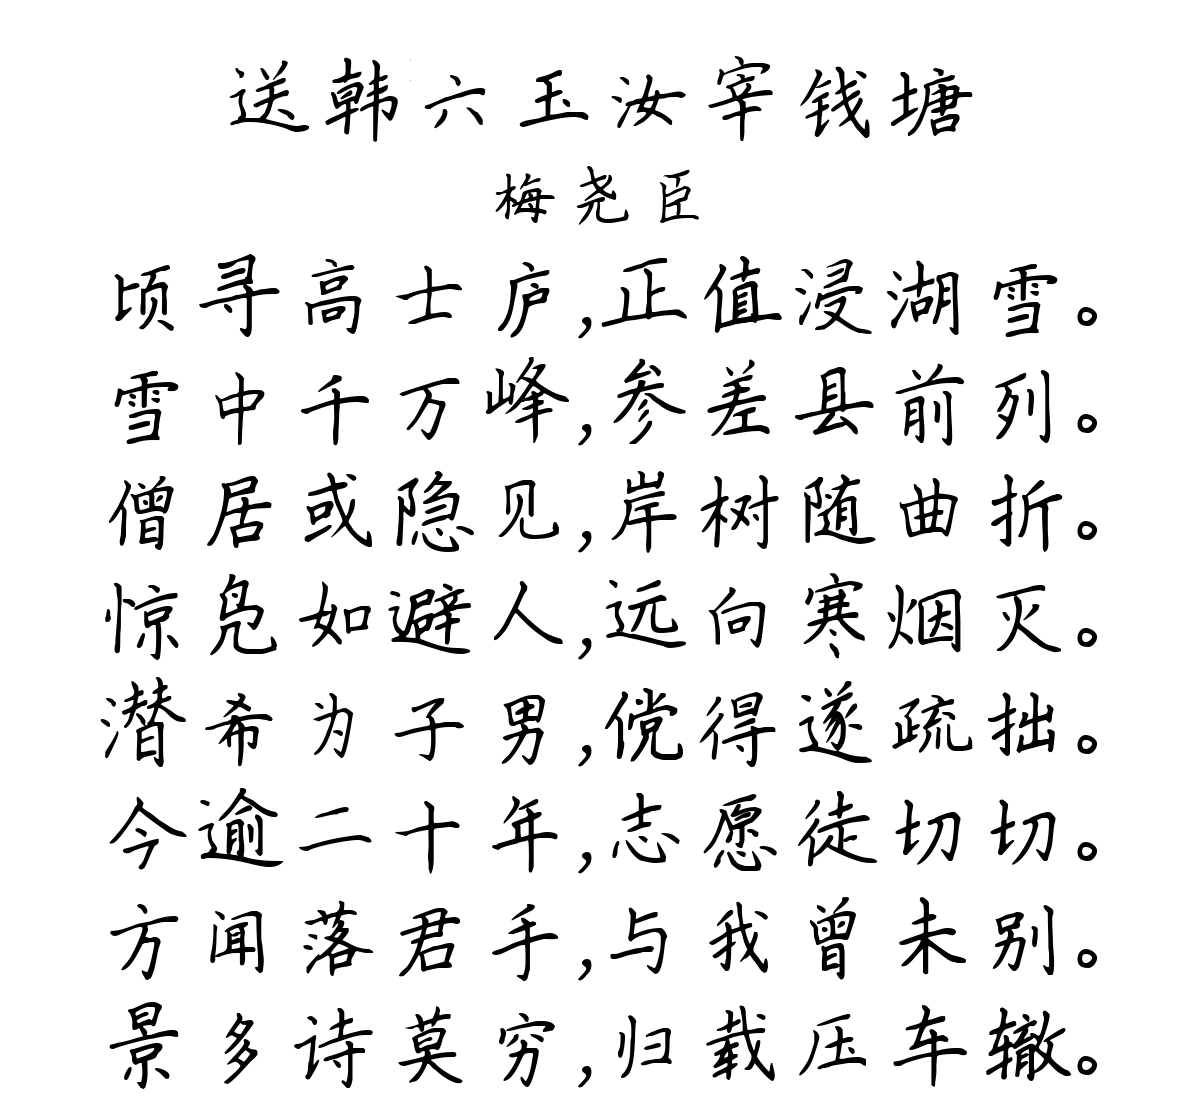 送韩六玉汝宰钱塘
梅尧臣
顷寻高士庐,正值浸湖雪。
雪中千万峰,参差县前列。
僧居或隐见,岸树随曲折。
惊凫如避人,远向寒烟灭。
潜希为子男,傥得遂疏拙。
今逾二十年,志愿徒切切。
方闻落君手,与我曾未别。
景多诗莫穷,归载压车辙。